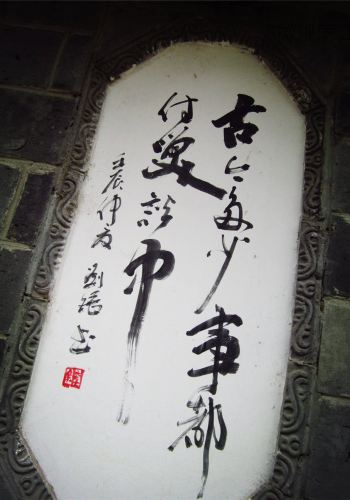 古今多少事都
付笑談中
壬辰仲夏 劉 书